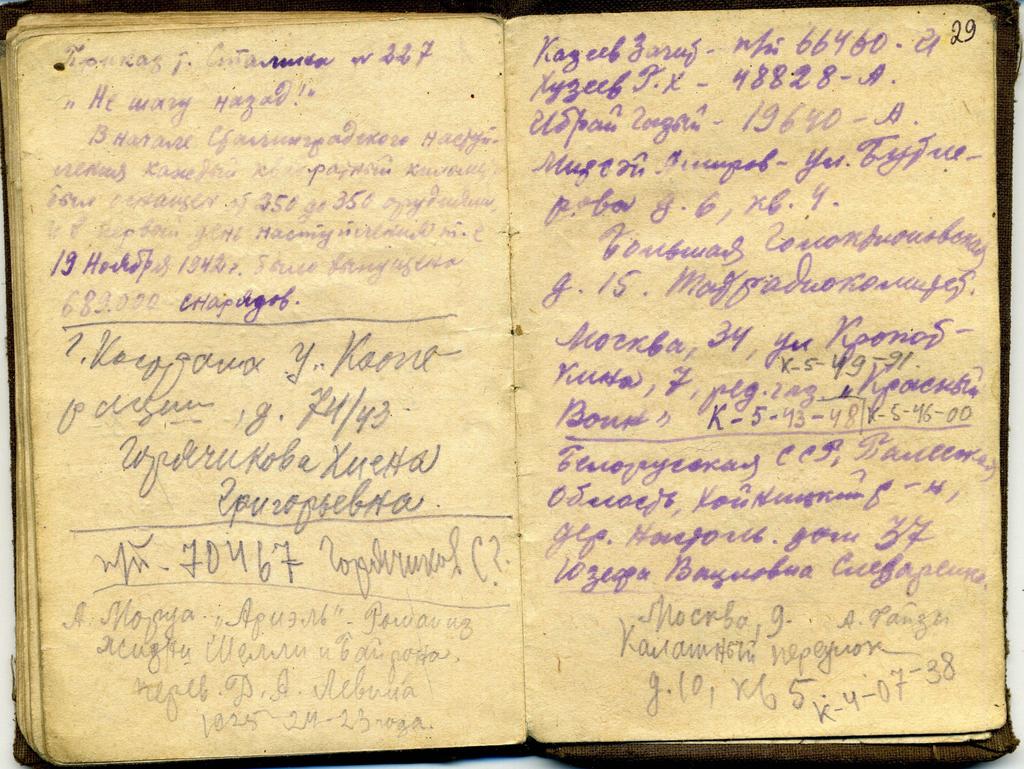 Приказ т. Сталина № 227
"Не шагу назад!"
В начале Сталинградского насту-
пления каждый квадратный километр
был оснащен от 250 до 350 орудиями,
и в первый день наступления т.е
19 Ноября 1942 г. было выпущено
689.000 снарядов.
г. у. Коопе-
рации, д. 74/43
Горячикова
Григорьевна.
п/п - 70467 Горячиков С.Г.
А. Моруа. "Ариэль" - Роман из
жизни Шелли и Байрона.
перев. Л. А. Левина
1925 24-23 года.
29
Казеев Загит - п/п 66460 - И
Хузеев Г. Х - 48828 - А.
Ибрай Гази - 19640 - А.
Амиров - ул. Бутле-
рова д. 6, кв. 4.
Большая
д. 15. Татрадиокомитет.
Москва, 34, ул Кропот-
К-5-49-91.
кина, 7, ред. газ "Красный
Воин" К-5-43-48 К-5-46-00
Белорусская ССР, Палесская
Область, Хойникский р-н,
дер. дом 37
Юзефа Вацловна Слесаренко.
Москва, 9. А. Файзи
Калашный переулок
д. 10, кв 5. К-4-07-38